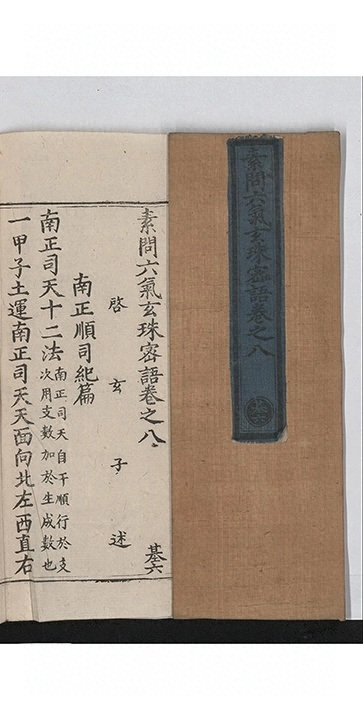 素問六氣玄珠密語卷之八
素問六氣玄珠密語卷之八 基六
啓玄子述
南正順司紀篇
南正司天十二法 南正司天自干順行於支
次用支數加於生成數也
一甲子土運南正司天天面向北左西直右